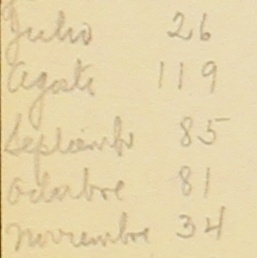 Julio 26
Agosto 119
Septiembre 85
Octubre 81
Noviembre 34